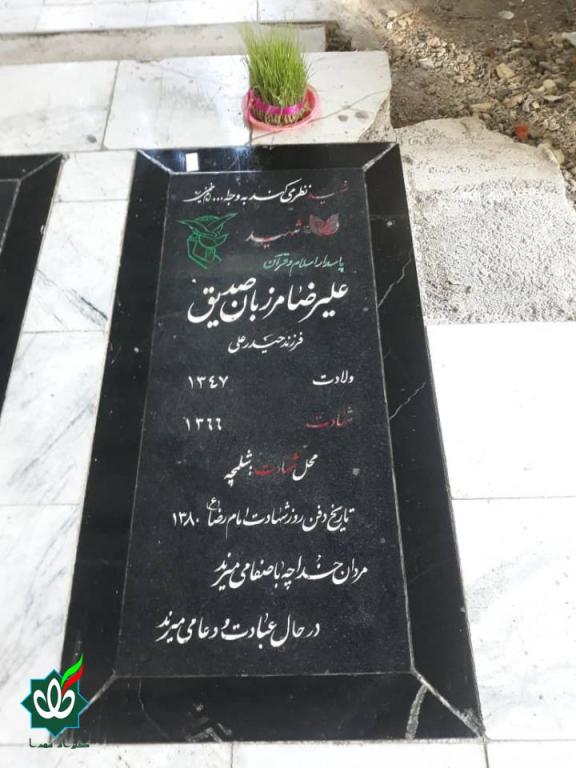 شهید نظر می‌کند به وجه‌ا...
شهید
پاسدار اسلام و قرآن
علیرضا مرزبان صدیق
فرزند حیدرعلی
ولادت ۱۳۴۷
شهادت ۱۳۶۶
محل شهادت: شلمچه
تاریخ دفن روز شهادت امام رضا ع ۱۳۸۰
مردان خدا چه باصفا می میرند
در حال عبادت و دعا می میرند